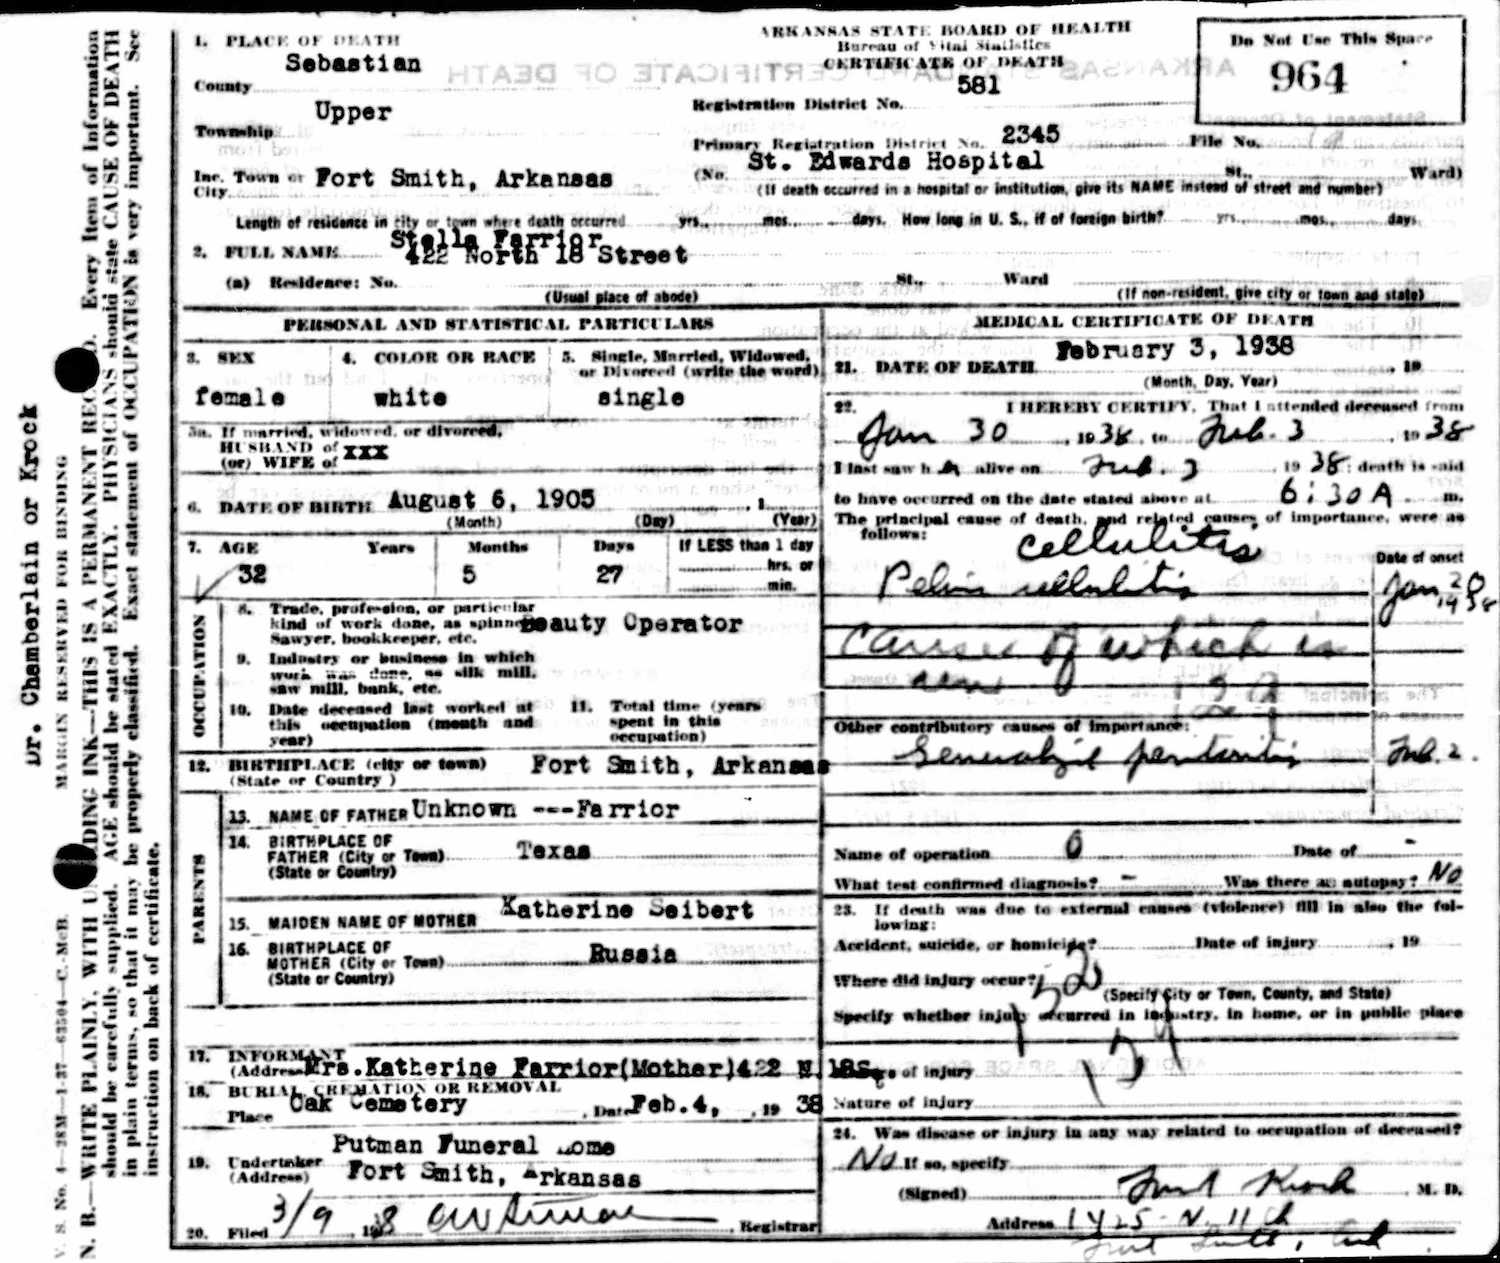 ARKANSAS STATE BOARD OF HEALTH
Bureau of Vital Statistics
CERTIFICATE OF DEATH
Do Not Use This Space
964
1. PLACE OF DEATH
County Sebastian
Registration District No. 581
Township Upper
Primary Registration District No. 2345 File No.
Inc. Town or City Fort Smith, Arkansas
(No. St. Edwards Hospital St., Ward)
(If death occurred in a hospital or institution, give its NAME instead of street and number)
Length of residence in city or town where death occurred yrs. mos. days. How long in U. S., if of foreign birth? yrs. mos. days.
2. FULL NAME Stella Farrior
422 North 18 Street
(a) Residence: No. St. Ward
(Usual place of abode) (If non-resident, give city or town and state)
PERSONAL AND STATISTICAL PARTICULARS
3. SEX female
4. COLOR OR RACE white
5. Single, Married, Widowed, or Divorced (write the word) single
5a. If married, widowed, or divorced,
HUSBAND of
(or) WIFE of xxx
6. DATE OF BIRTH August 6, 1905 , 1
(Month) (Day) (Year)
7. AGE Years Months Days If LESS than 1 day
32 5 27 hrs. or min.
OCCUPATION
8. Trade, profession, or particular kind of work done, as spinner, Sawyer, bookkeeper, etc. Beauty Operator
9. Industry or business in which work was done, as silk mill, saw mill, bank, etc.
10. Date deceased last worked at this occupation (month and year)
11. Total time (years spent in this occupation)
12. BIRTHPLACE (city or town) Fort Smith, Arkansas
(State or Country)
PARENTS
13. NAME OF FATHER Unknown ---Farrior
14. BIRTHPLACE OF FATHER (City or Town) Texas
(State or Country)
15. MAIDEN NAME OF MOTHER Katherine Seibert
16. BIRTHPLACE OF MOTHER (City or Town) Russia
(State or Country)
17. INFORMANT
(Address) Mrs.Katherine Farrior(Mother)422 N.18S
18. BURIAL, CREMATION OR REMOVAL
Place Oak Cemetery , Date Feb.4, , 19 38
19. Undertaker Putman Funeral Home
(Address) Fort Smith, Arkansas
20. Filed 3/9 1938 Registrar
MEDICAL CERTIFICATE OF DEATH
21. DATE OF DEATH February 3, 1938 , 19
(Month, Day, Year)
22. I HEREBY CERTIFY, That I attended deceased from
Jan 30 , 1938, to Feb. 3 , 1938
I last saw her alive on Feb. 3 , 1938; death is said
to have occurred on the date stated above at 6:30 A. m.
The principal cause of death, and related causes of importance, were as follows:
Date of onset
cellulitis
Pelvic cellulitis Jan 20 1938
Cause of which is
129
Other contributory causes of importance:
Generalized peritonitis Feb. 2.
Name of operation 0 Date of -
What test confirmed diagnosis? - Was there an autopsy? No
23. If death was due to external causes (violence) fill in also the following:
Accident, suicide, or homicide? Date of injury , 19
Where did injury occur?
(Specify City or Town, County, and State)
Specify whether injury occurred in industry, in home, or in public place
129
of injury
Nature of injury
24. Was disease or injury in any way related to occupation of deceased?
No If so, specify
(Signed) Krock M. D.
Address 1425 - N. 11th
Fort Smith, Ark
Dr. Chamberlain or Krock
V. S. No. 4—28M—1-37—63504—C.-McB.
MARGIN RESERVED FOR BINDING
N. B.—WRITE PLAINLY, WITH UNFADING INK—THIS IS A PERMANENT RECORD. Every Item of Information
should be carefully supplied. AGE should be stated EXACTLY. PHYSICIANS should state CAUSE OF DEATH
in plain terms, so that it may be properly classified. Exact statement of OCCUPATION is very important. See
instruction on back of certificate.